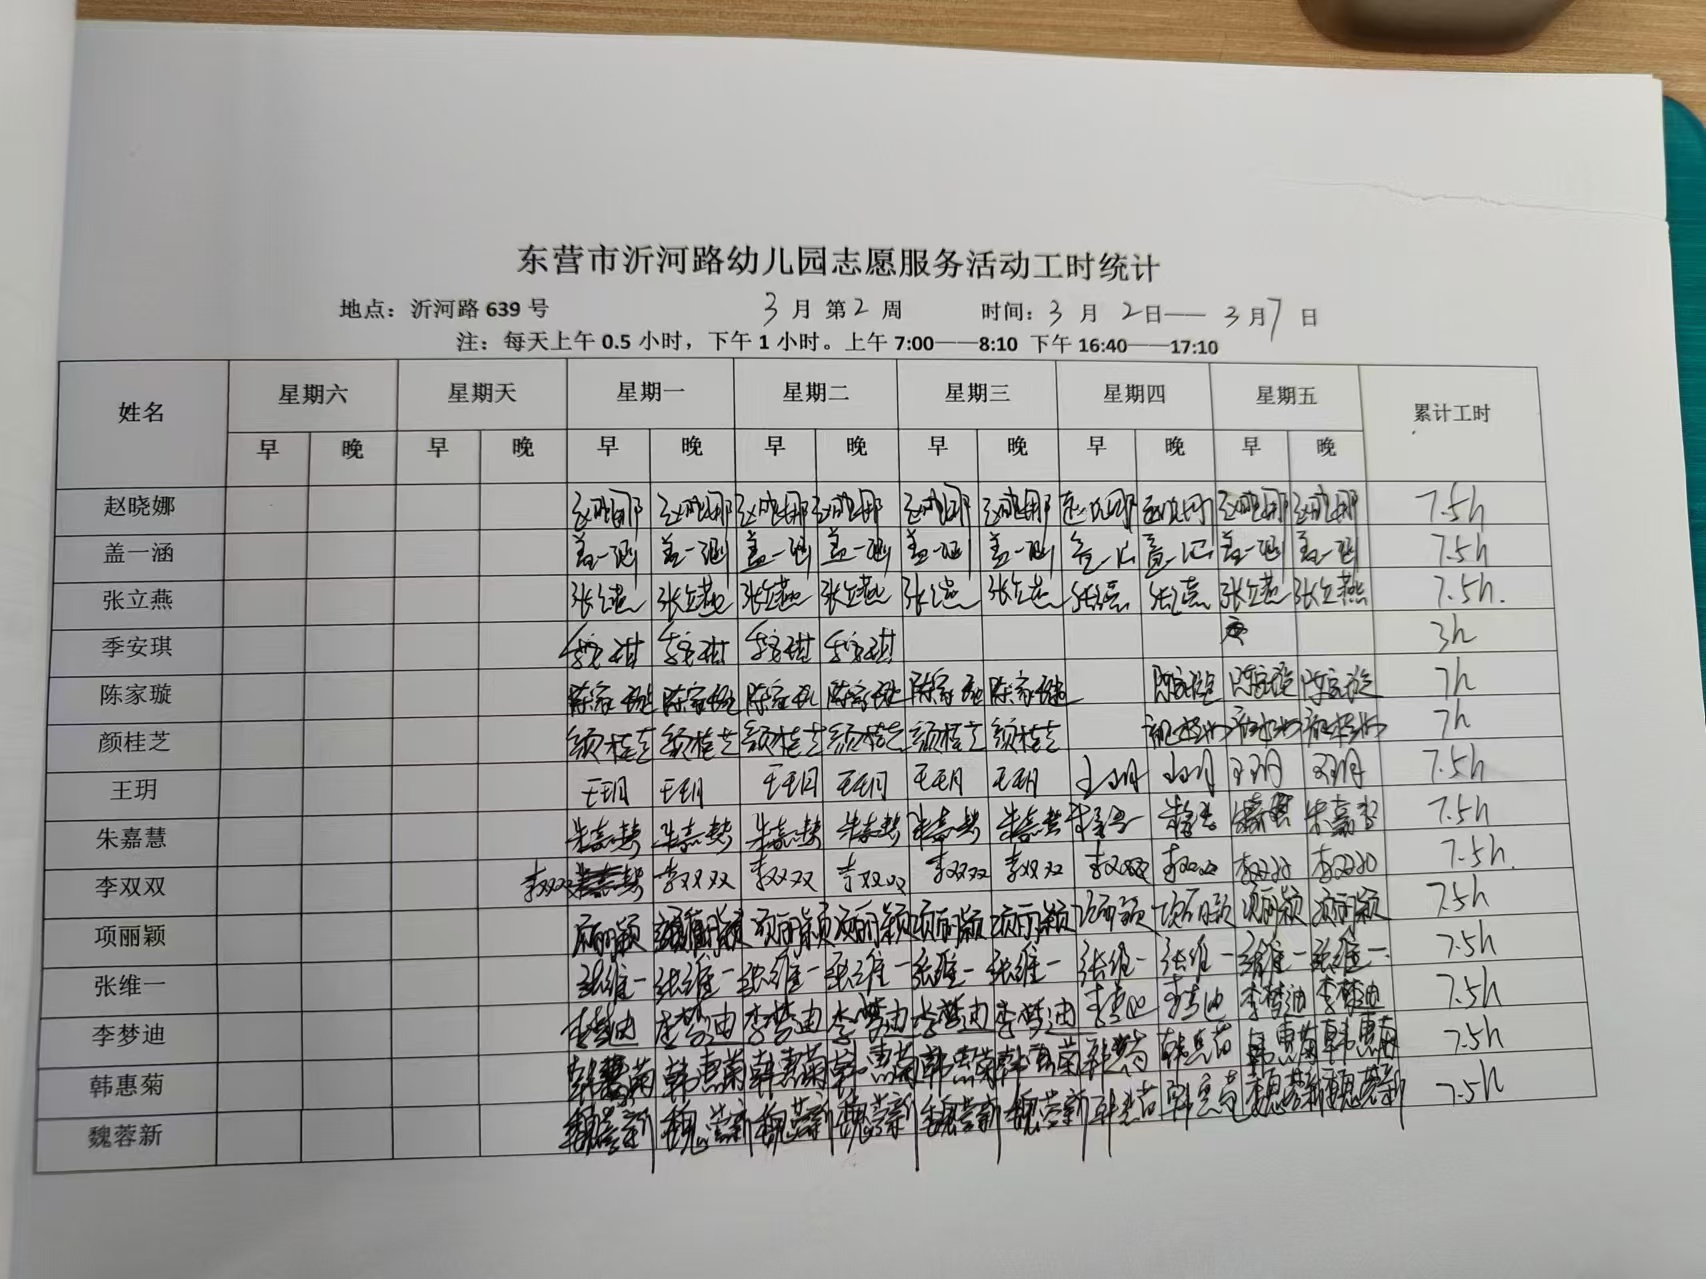 东营市沂河路幼儿园志愿服务活动工时统计
地点：沂河路 639 号 3 月 第 2 周 时间：3 月 2日—— 3月7 日
注：每天上午 0.5 小时，下午 1 小时。上午 7:00——8:10 下午 16:40——17:10
姓名 星期六 星期天 星期一 星期二 星期三 星期四 星期五 累计工时
早 晚 早 晚 早 晚 早 晚 早 晚 早 晚 早 晚
赵晓娜 赵晓娜 赵晓娜 赵晓娜 赵晓娜 赵晓娜 赵晓娜 赵晓娜 赵晓娜 赵晓娜 赵晓娜 7.5h
盖一涵 盖一涵 盖一涵 盖一涵 盖一涵 盖一涵 盖一涵 盖一涵 盖一涵 盖一涵 盖一涵 7.5h
张立燕 张立燕 张立燕 张立燕 张立燕 张立燕 张立燕 张立燕 张立燕 张立燕 张立燕 7.5h.
季安琪 季安琪 季安琪 季安琪 季安琪 3h
陈家璇 陈家璇 陈家璇 陈家璇 陈家璇 陈家璇 陈家璇 陈家璇 陈家璇 陈家璇 7h
颜桂芝 颜桂芝 颜桂芝 颜桂芝 颜桂芝 颜桂芝 颜桂芝 颜桂芝 颜桂芝 颜桂芝 7h
王玥 王玥 王玥 王玥 王玥 王玥 王玥 王玥 王玥 王玥 王玥 7.5h
朱嘉慧 朱嘉慧 朱嘉慧 朱嘉慧 朱嘉慧 朱嘉慧 朱嘉慧 朱嘉慧 朱嘉慧 朱嘉慧 朱嘉慧 7.5h
李双双 李双双 李双双 李双双 李双双 李双双 李双双 李双双 李双双 李双双 李双双 7.5h.
项丽颖 项丽颖 项丽颖 项丽颖 项丽颖 项丽颖 项丽颖 项丽颖 项丽颖 项丽颖 项丽颖 7.5h
张维一 张维一 张维一 张维一 张维一 张维一 张维一 张维一 张维一 张维一 张维一 7.5h
李梦迪 李梦迪 李梦迪 李梦迪 李梦迪 李梦迪 李梦迪 李梦迪 李梦迪 李梦迪 李梦迪 7.5h
韩惠菊 韩惠菊 韩惠菊 韩惠菊 韩惠菊 韩惠菊 韩惠菊 韩惠菊 韩惠菊 韩惠菊 韩惠菊 7.5h
魏蓉新 魏蓉新 魏蓉新 魏蓉新 魏蓉新 魏蓉新 魏蓉新 韩惠菊 韩惠菊 魏蓉新 魏蓉新 7.5h